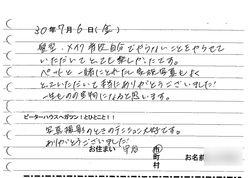 30年7月6日(金)
髪型・メイク普段自分でやらないことをやらせて
いただいてとても楽しかったです。
ペットと一緒にとれたし家族写真もよく
とっていただいて本当にありがとうございました!
一生ものの宝物になると思います。
ピーターハウスへガツン!とひとこと!!
写真撮影のときのテンション大好です。
ありがとうございました!
お住まい 市 町 村 お名前